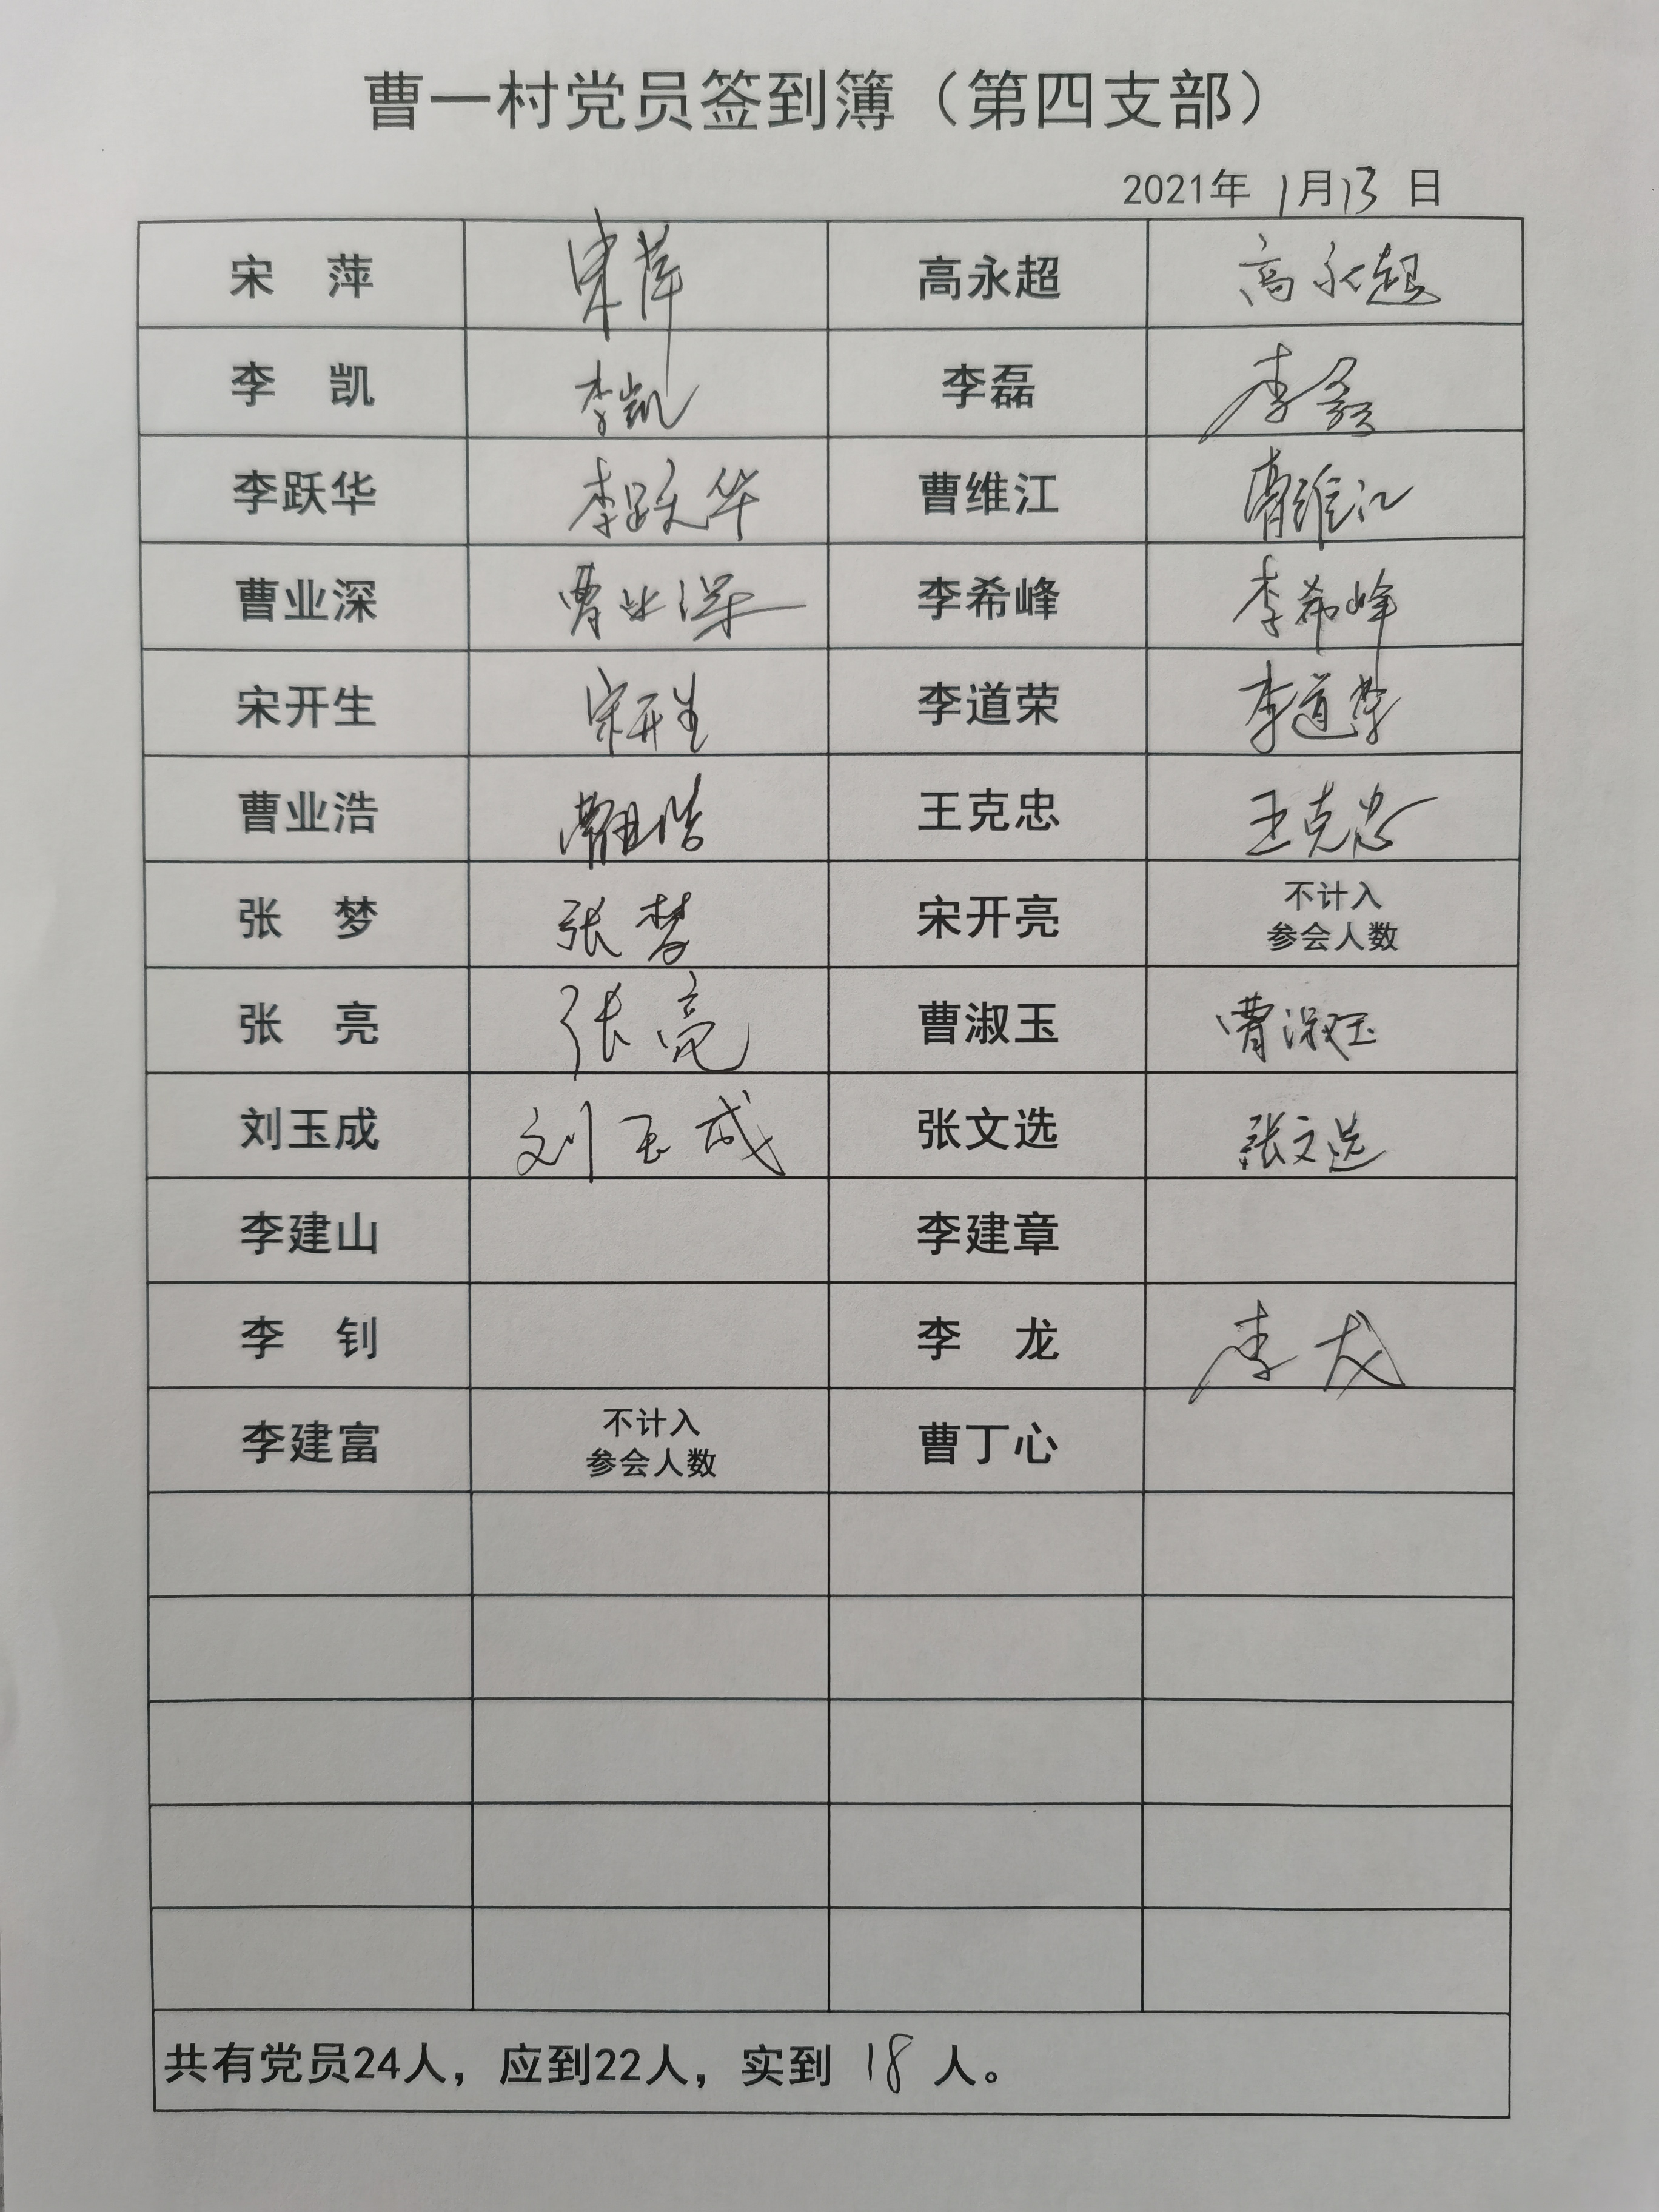 曹一村党员签到簿（第四支部）
2021年 1月13日
宋 萍 宋萍 高永超 高永超
李 凯 李凯 李磊 李磊
李跃华 李跃华 曹维江 曹维江
曹业深 曹业深 李希峰 李希峰
宋开生 宋开生 李道荣 李道荣
曹业浩 曹业浩 王克忠 王克忠
张 梦 张梦 宋开亮 不计入
参会人数
张 亮 张亮 曹淑玉 曹淑玉
刘玉成 刘玉成 张文选 张文选
李建山 李建章
李 钊 李 龙 李龙
李建富 不计入
参会人数 曹丁心
共有党员24人，应到22人，实到 18 人。